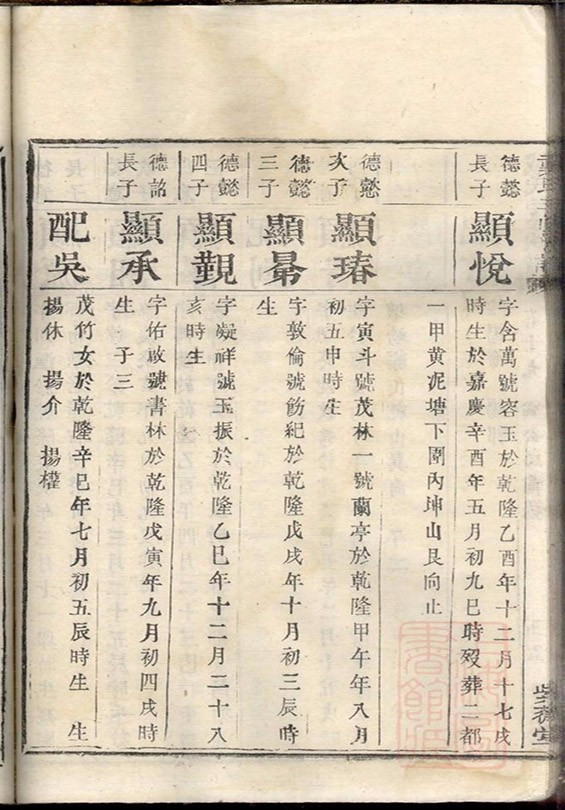 德懿
長子
顯悅
字含萬號容玉於乾隆乙酉年十二月十七戌
時生於嘉慶辛酉年五月初九巳時歿葬二都
一甲黃泥塘下圍內坤山艮向止
德懿
次子
顯瑃
字寅斗號茂林一號蘭亭於乾隆甲午年八月
初五申時生
德懿
三子
顯曻
字敦倫號飭紀於乾隆戊戌年十月初三辰時
生
德懿
四子
顯覲
字凝祥號玉振於乾隆乙巳年十二月二十八
亥時生
德詔
長子
顯承
字佑啟號書林於乾隆戊寅年九月初四戌時
生 子三
配吳
茂竹女於乾隆辛巳年七月初五辰時生 生
揚休 揚介 揚權